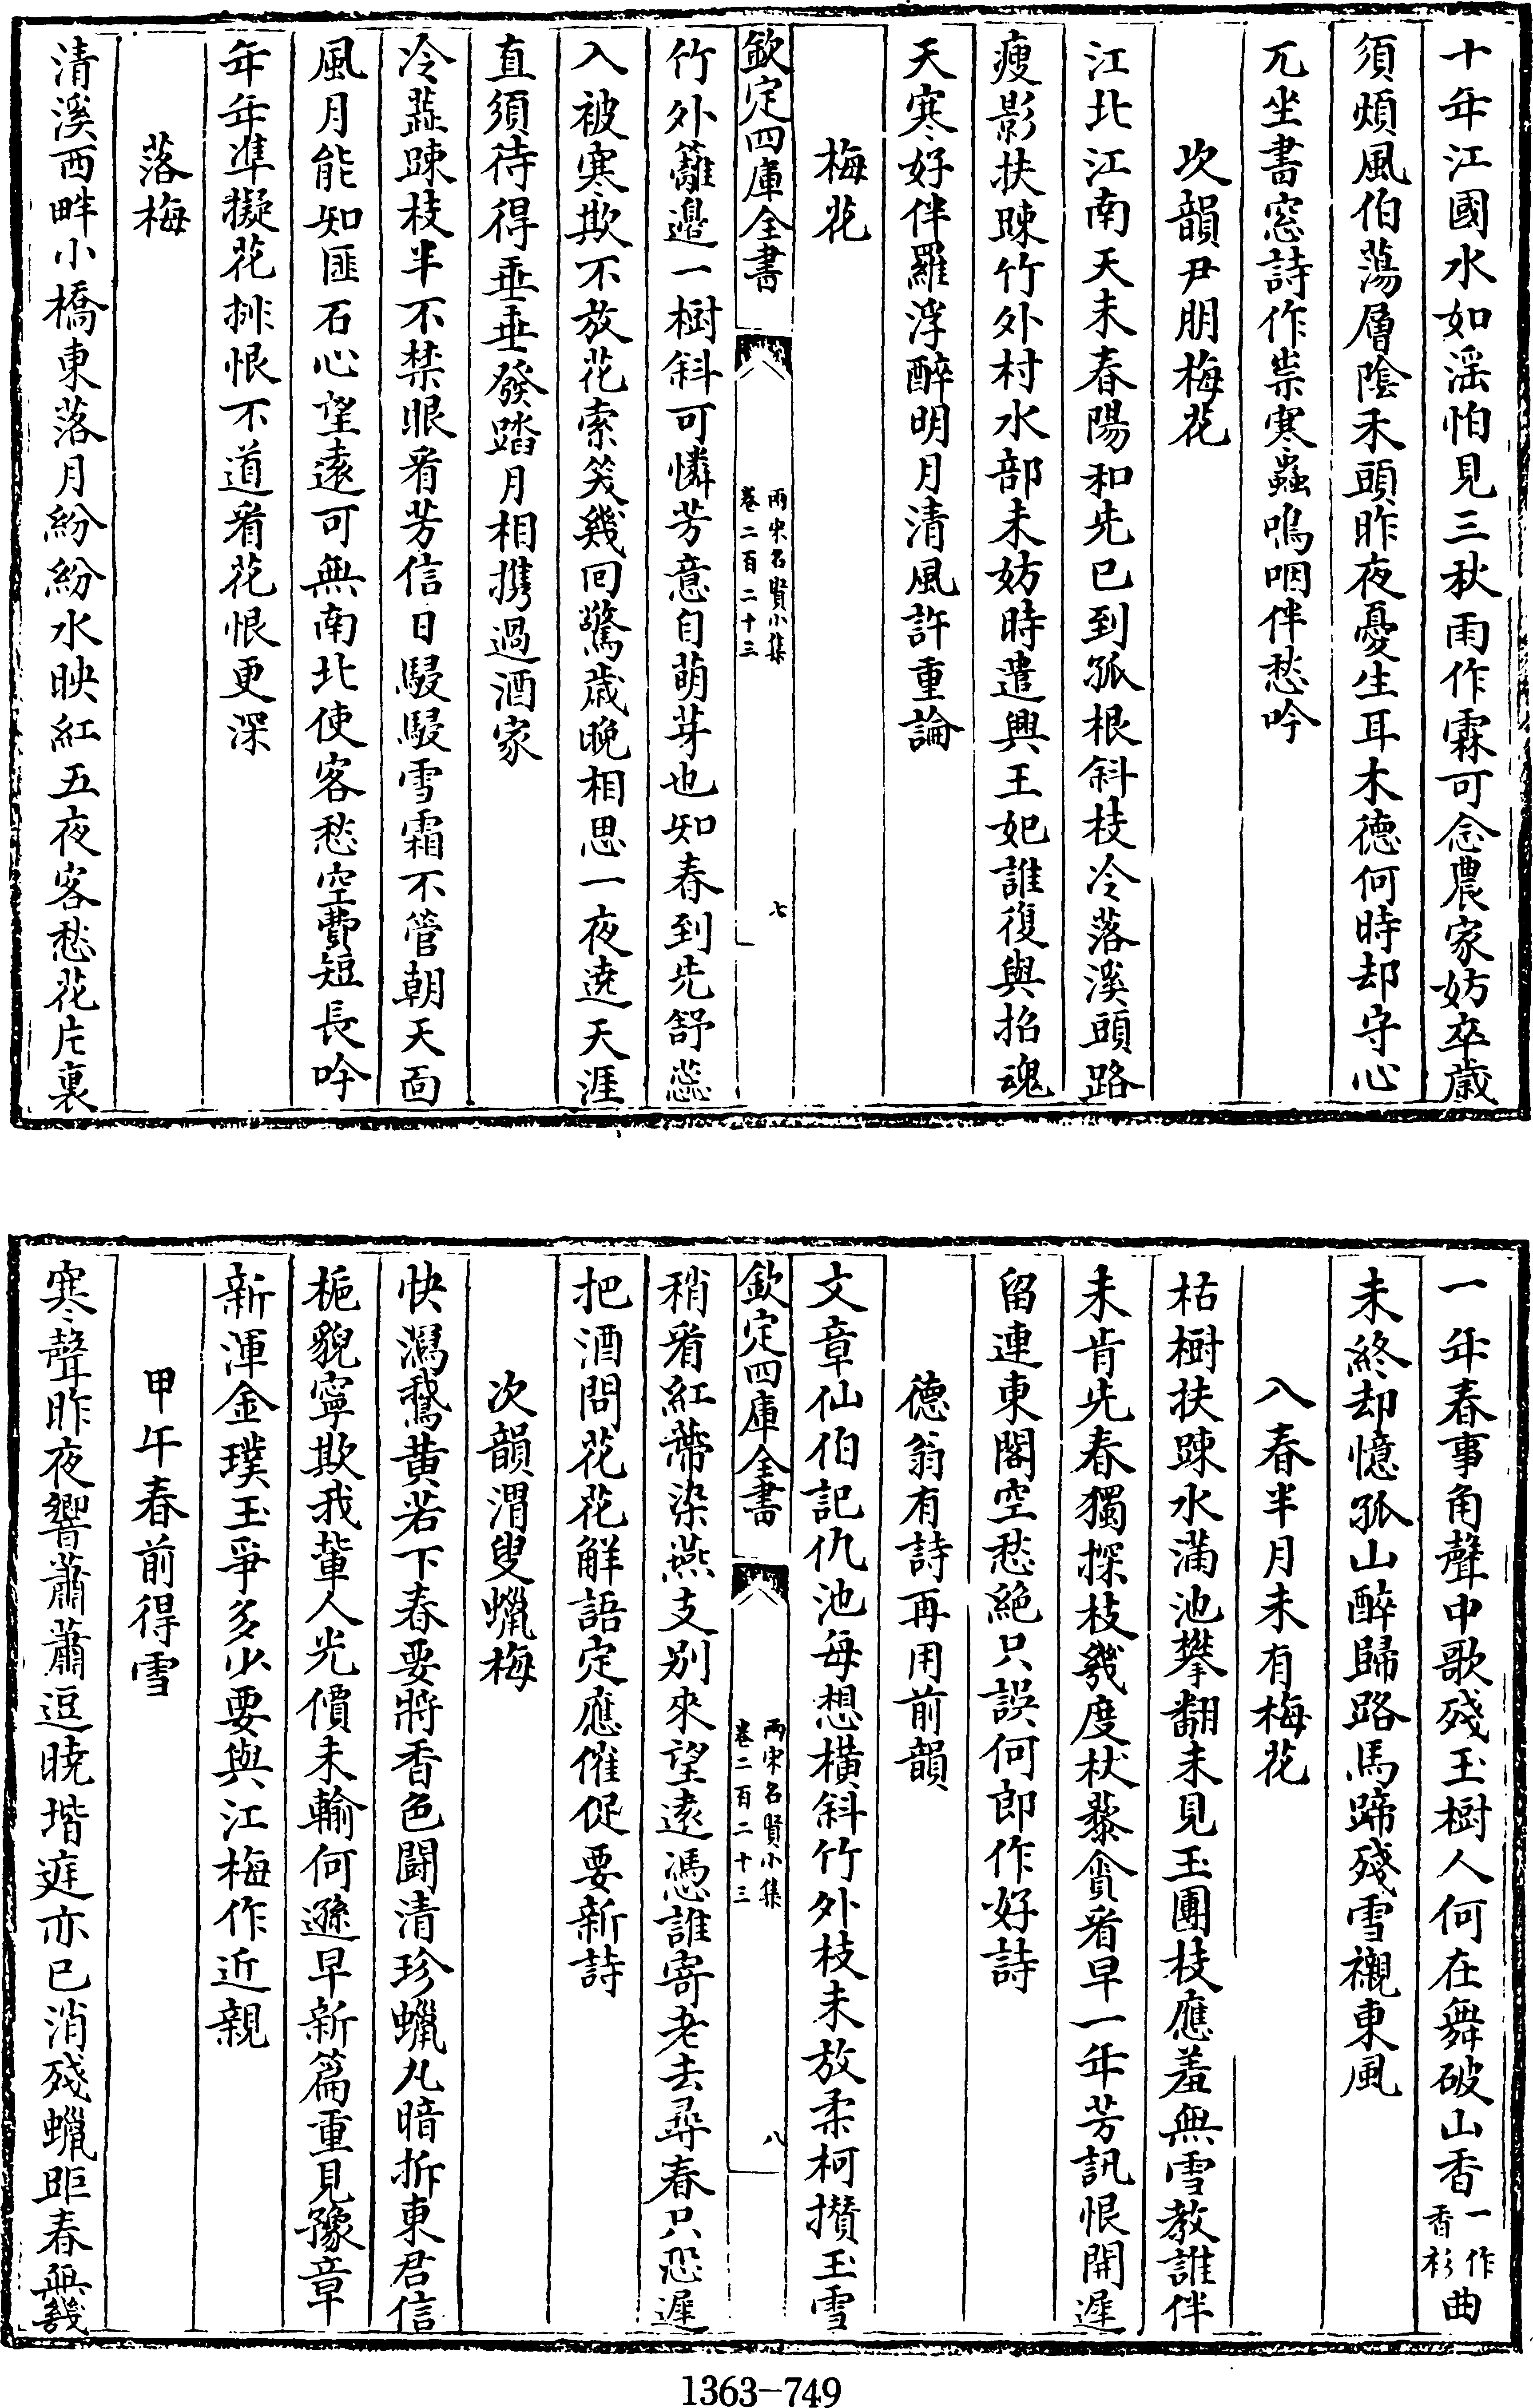 十年江國水如淫怕見三秋雨作霖可念農家妨卒歲
須煩風伯蕩層隂禾頭昨夜憂生耳木徳何時却守心
兀坐書窓詩作祟寒蟲鳴咽伴愁吟
次韻尹朋梅花
江北江南天未春陽和先已到孤根斜枝冷落溪頭路
瘦影扶踈竹外村水部未妨時遣興王妃誰復與招魂
天寒好伴羅浮醉明月清風許重論
梅花
欽定四庫全書
兩宋名賢小集
卷二百二十三
七
竹外籬邉一樹斜可憐芳意自萌芽也知春到先舒蕊
入被寒欺不放花索笑幾回驚歳晚相思一夜遶天涯
直須待得垂垂發踏月相携過酒家
冷蕋踈枝半不禁眼看芳信日駸駸雪霜不管朝天面
風月能知匪石心望逺可無南北使客愁空費短長吟
年年準擬花排恨不道看花恨更深
落梅
清溪西畔小橋東落月紛紛水映紅五夜客愁花片裏
一年春事角聲中歌殘玉樹人何在舞破山香一作香衫曲
未終却憶孤山醉歸路馬蹄殘雪襯東風
八春半月未有梅花
枯樹扶踈水滿池攀翻未見玉團枝應羞無雪教誰伴
未肯先春獨探枝幾度杖藜貪看早一年芳訊恨開遲
留連東閣空愁絶只誤何郎作好詩
德翁有詩再用前韻
文章仙伯記仇池毎想橫斜竹外枝未放柔柯攅玉雪
欽定四庫全書
兩宋名賢小集
卷二百二十三
八
稍看紅蔕染燕支别來望逺憑誰寄老去尋春只恐遲
把酒問花花解語定應催促要新詩
次韻渭叟蠟梅
快瀉鵞黄若下春要將香色鬬清珍蠟丸暗拆東君信
梔貌寧欺我輩人光價未輸何遜早新篇重見豫章
新渾金璞玉爭多少要與江梅作近親
甲午春前得雪
寒聲昨夜響蕭蕭逗曉堦庭亦已消殘蠟距春無幾
1363-749